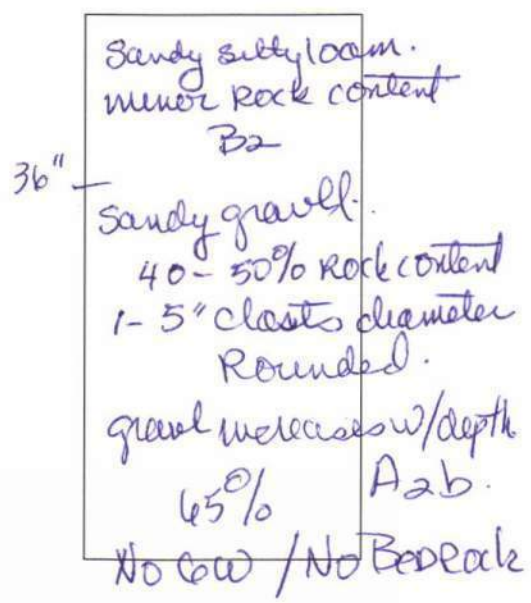 Sandy silty loam.
minor Rock content
B2
36"
Sandy gravell.
40-50% Rock content
1-5" clasts diameter
Rounded.
gravel increases w/depth
65% A2b.
No GW / No BEDRock